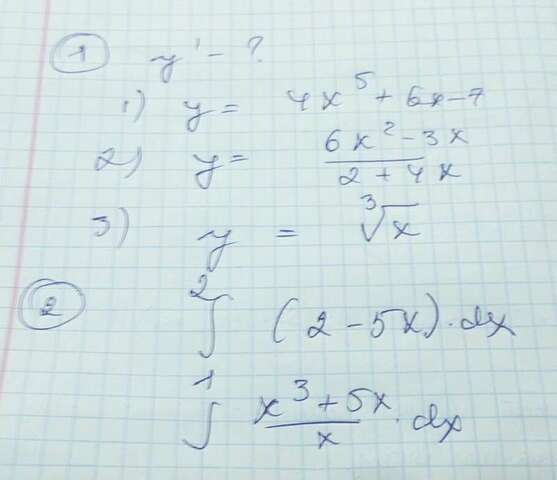 1 y' - ?
1) y = 4x⁵ + 6x - 7
2) y = (6x² - 3x)/(2 + 4x)
3) y = ∛x
2 ²∫ (2 - 5x) · dx
¹∫ (x³ + 5x)/x · dx